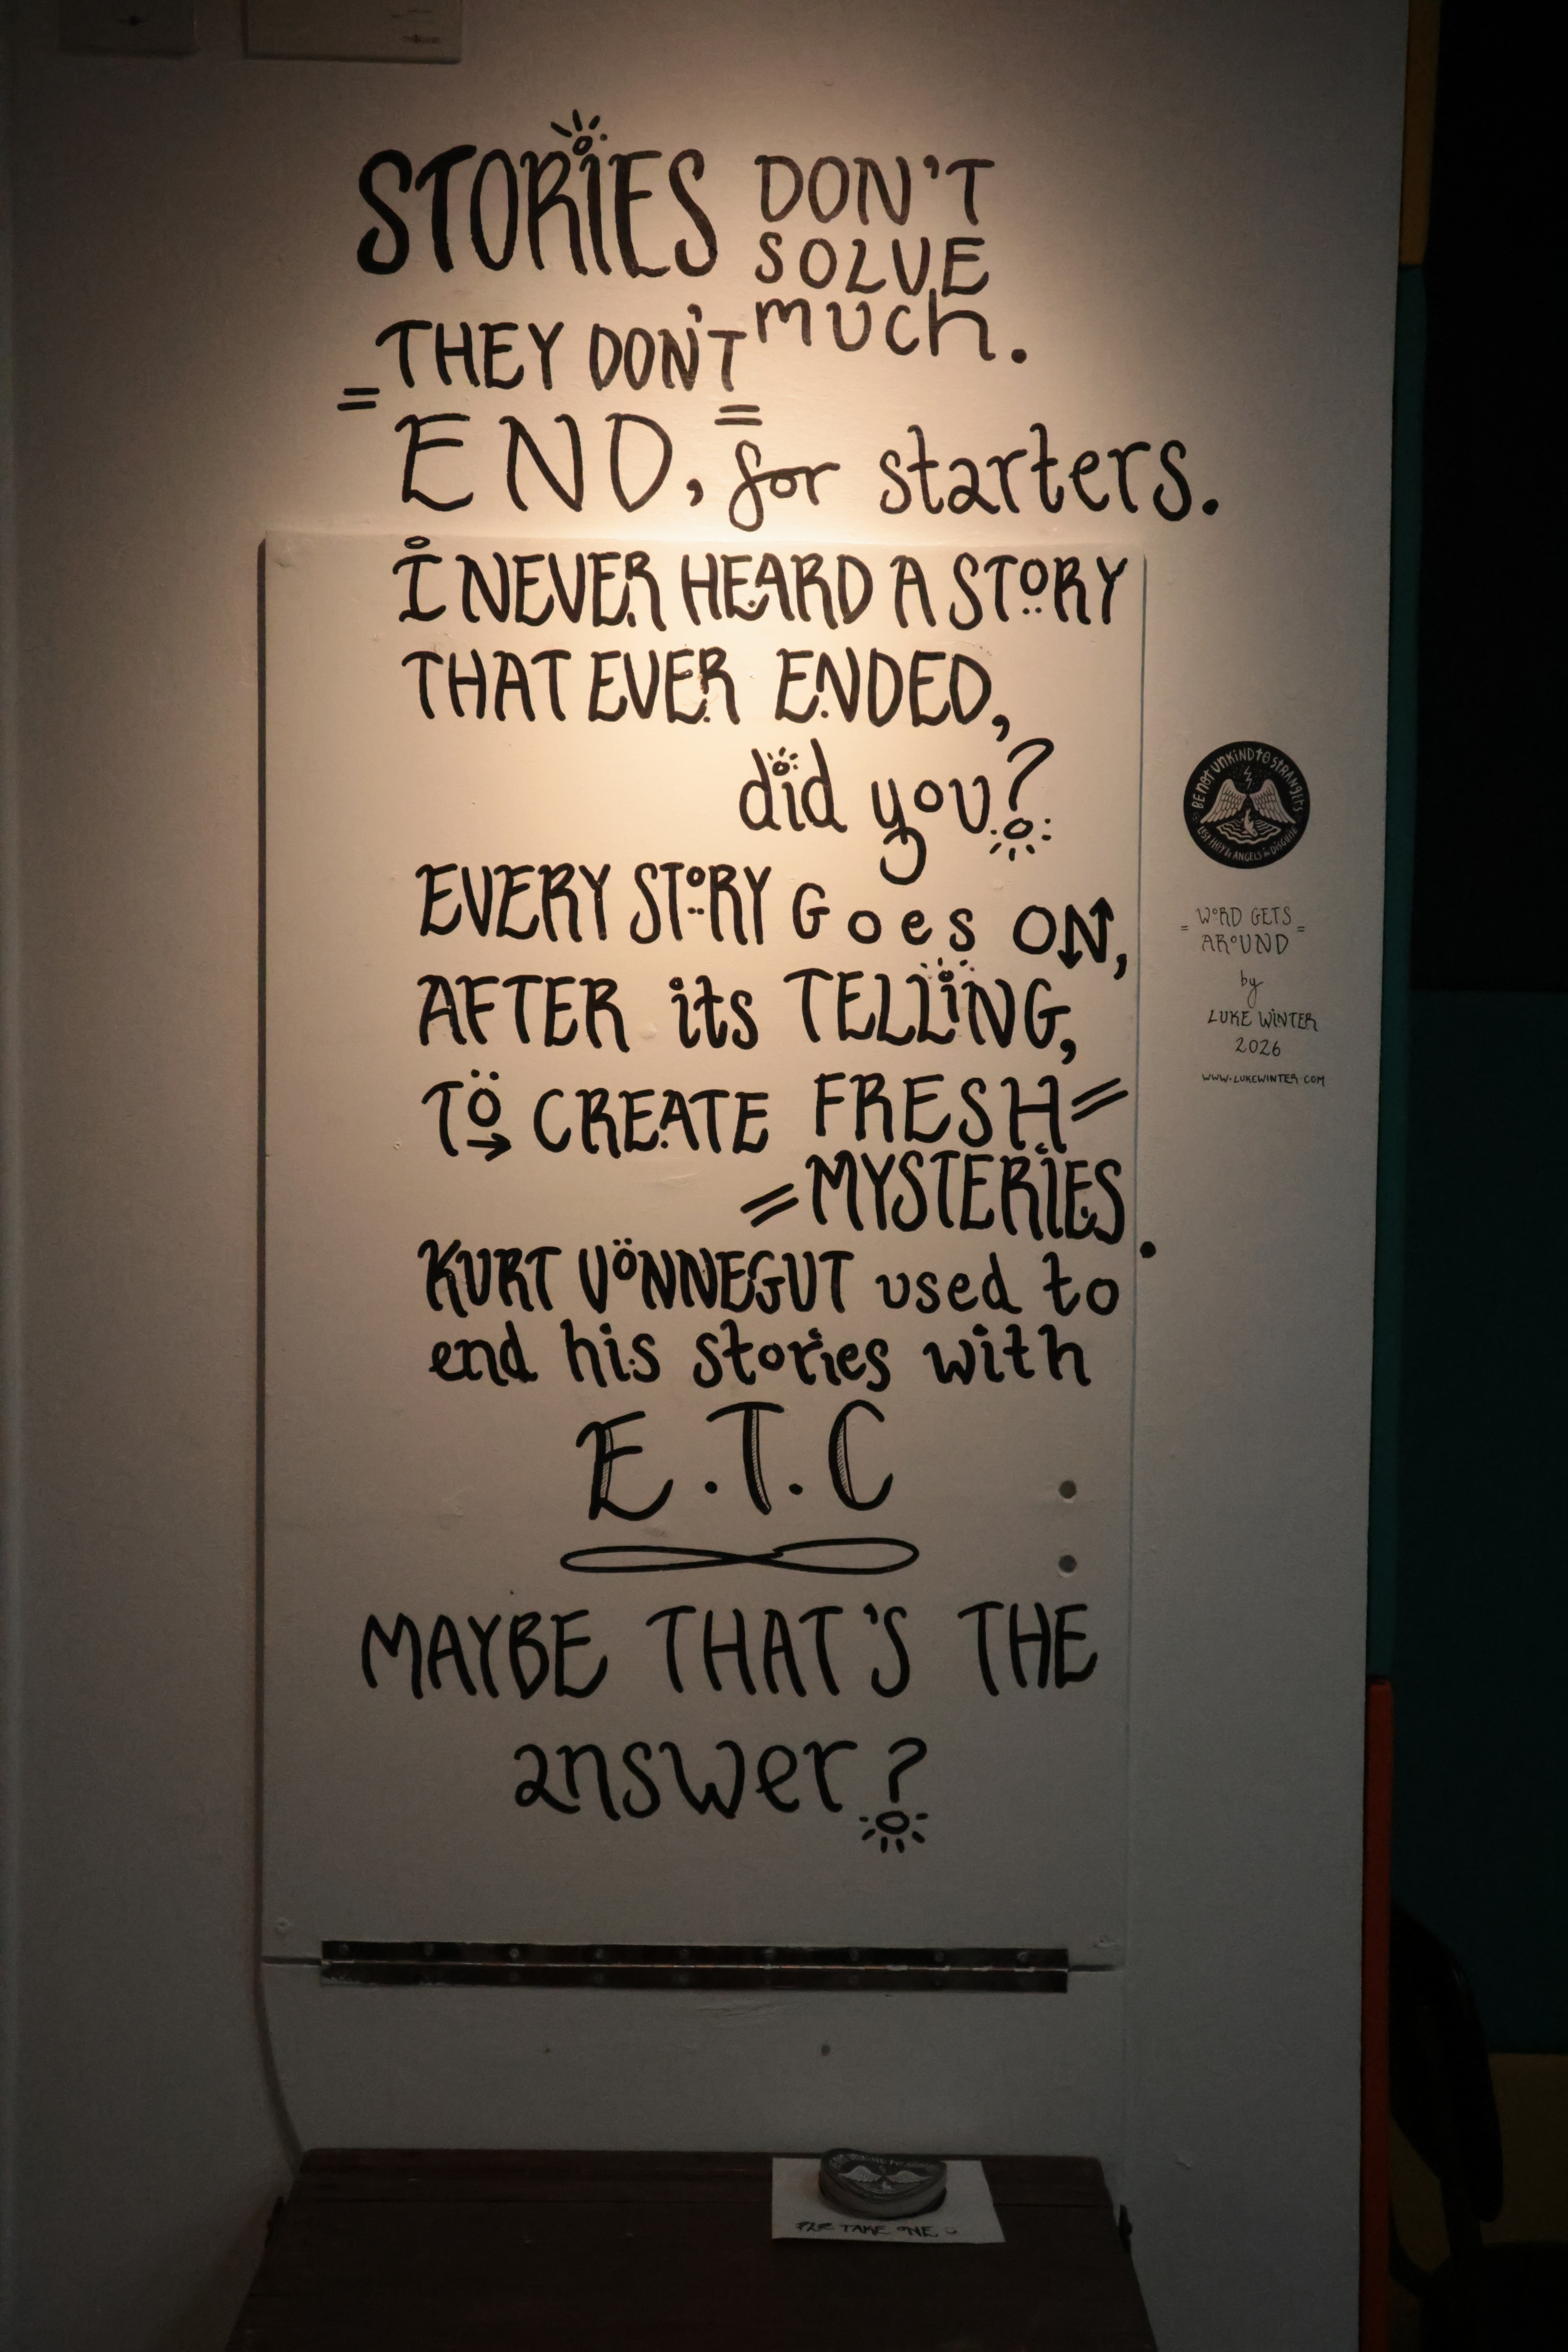 STORIES DON'T
SOLVE
much.
= THEY DON'T =
END, for starters.
I NEVER HEARD A STORY
THAT EVER ENDED,
did you?
EVERY STORY Goes ON,
AFTER its TELLING,
TO CREATE FRESH =
= MYSTERIES.
KURT VÖNNEGUT used to
end his stories with
E.T.C
MAYBE THAT'S THE
answer?
BE NOT UNKIND TO STRANGERS
LEST THEY BE ANGELS in DISGUISE
= WORD GETS =
AROUND
by
LUKE WINTER
2026
WWW.LUKEWINTER.COM
PLZ TAKE ONE